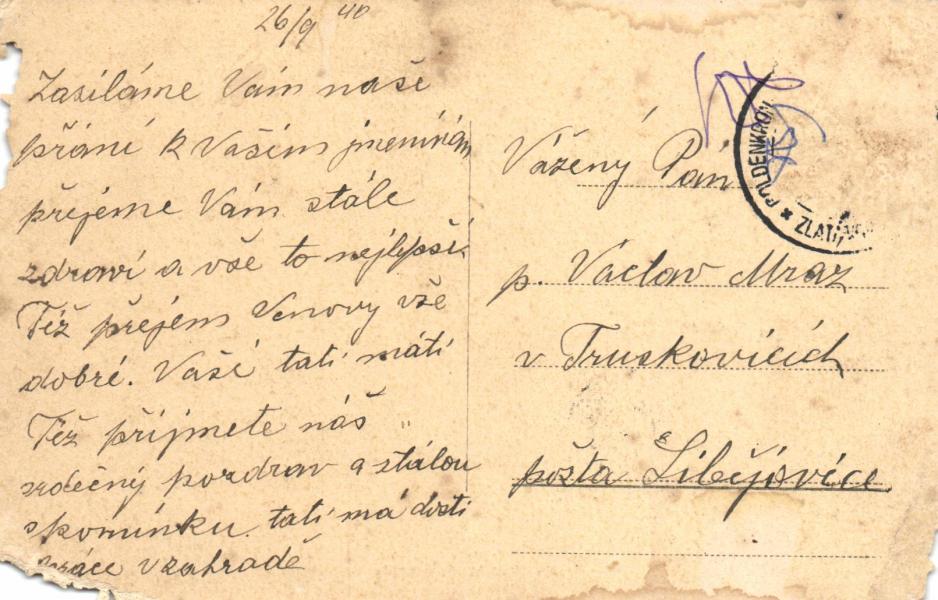 26/9 40
Zasíláme Vám naše
přání k Vašim jmeninám
přejeme Vám stále
zdraví a vše to nejlepší.
Též přejem Venovy vše
dobré. Vaší tatí máti
Též přijmete náš
srdečný pozdrav a stálou
skomínku. tatí má dosti
práce v zahradě
Vážený Pán
p. Václav Mraz
v Truskovicích
pošta Libějovice.
GOLDENKRON
ZLATÁ